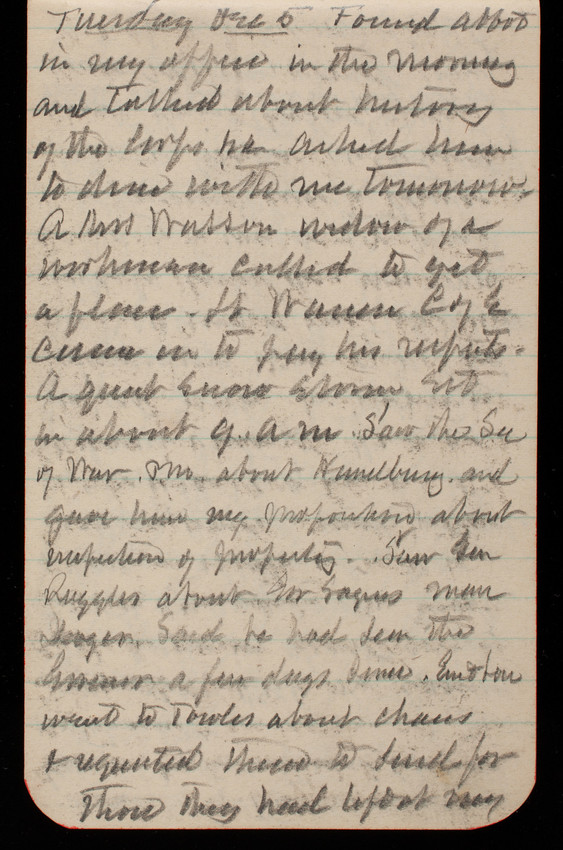 Tuesday Dec 5 Found Abbot
in my office in the morning
and talked about history
of the Corps he asked him
to dine with me tomorrow.
A Mrs Watson widow of a
workman called to get
a place. Lt Warren Co E
came in to pay his respects.
A great snow storm set
in about 9. a m. Saw the Sec
of War. about and
gave him my proposition about
inspection of property. Saw Gen
Ruggles about man
Said he had seen the
Governor a few days since.
went to Towles about chairs
& requested them to send for
those they had left at my